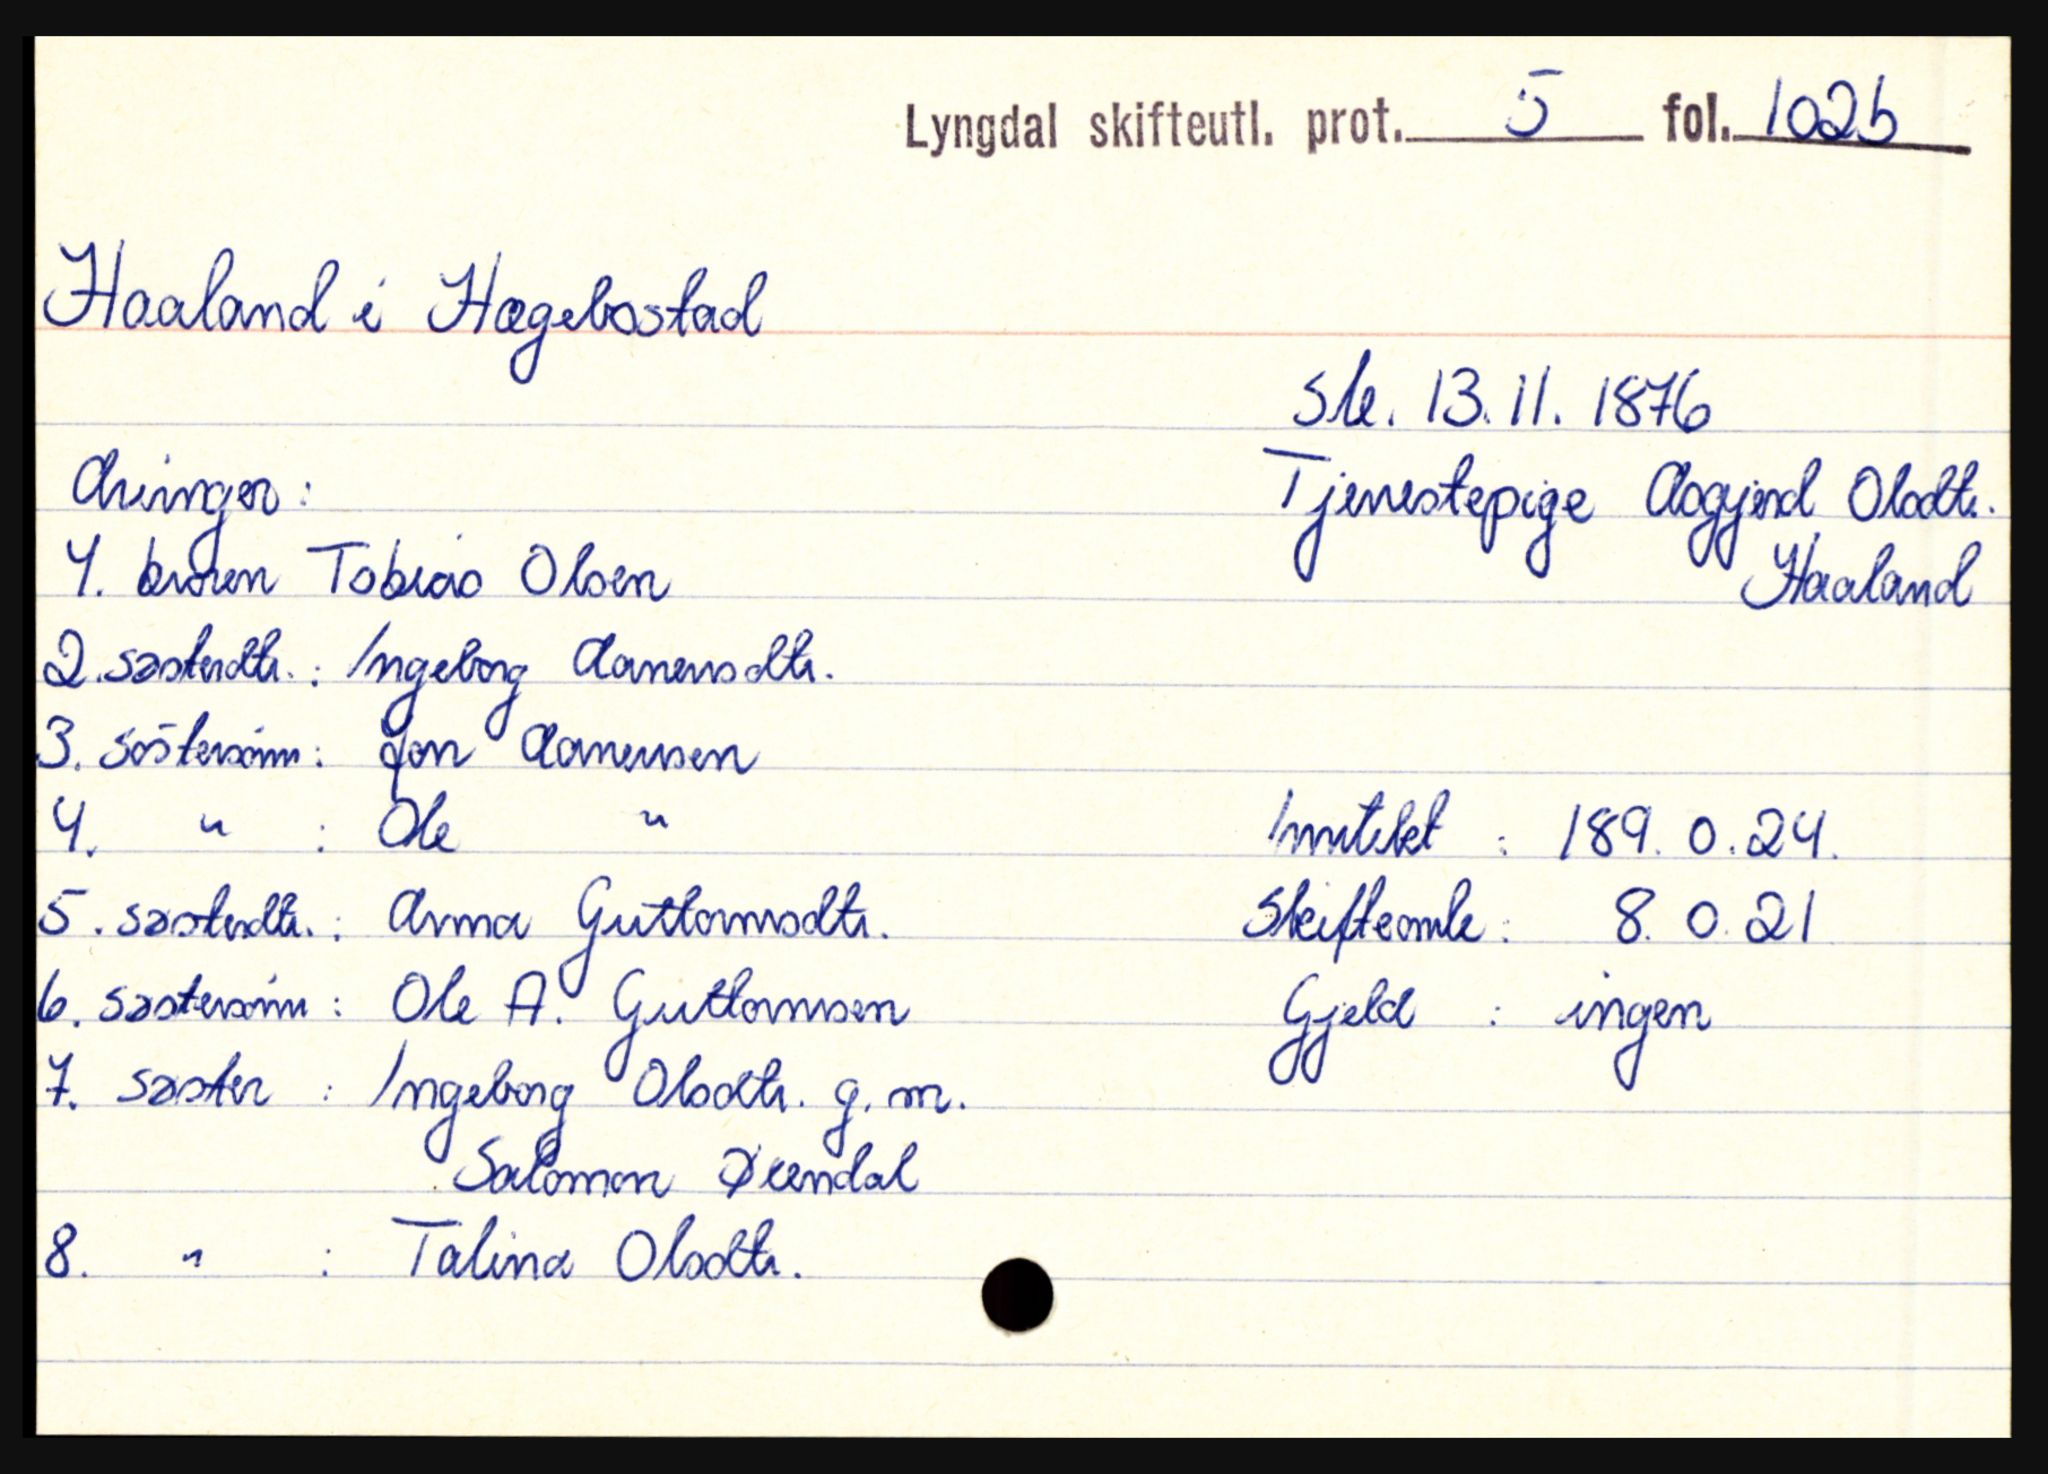 Lyngdal skifteutl. prot. 5 fol. 102b
Haaland i Hægebostad
Sk. 13.11.1876
Tjenestepige Aasgjerd Olsdtr.
Haaland
Arvinger:
1. broren Tobias Olsen
2. søsterdtr.: Ingeborg Aanensdtr.
3. søstersønn: Jon Aanensen
4. " : Ole "
5. søsterdtr.: Anna Guttormsdtr.
6. søstersønn: Ole A. Guttormsen
7. søster : Ingeborg Olsdtr. g.m.
Salomon
8. " : Talina Olsdtr.
Inntekt : 189.0.24.
Skifteomk: 8.0.21
Gjeld : ingen